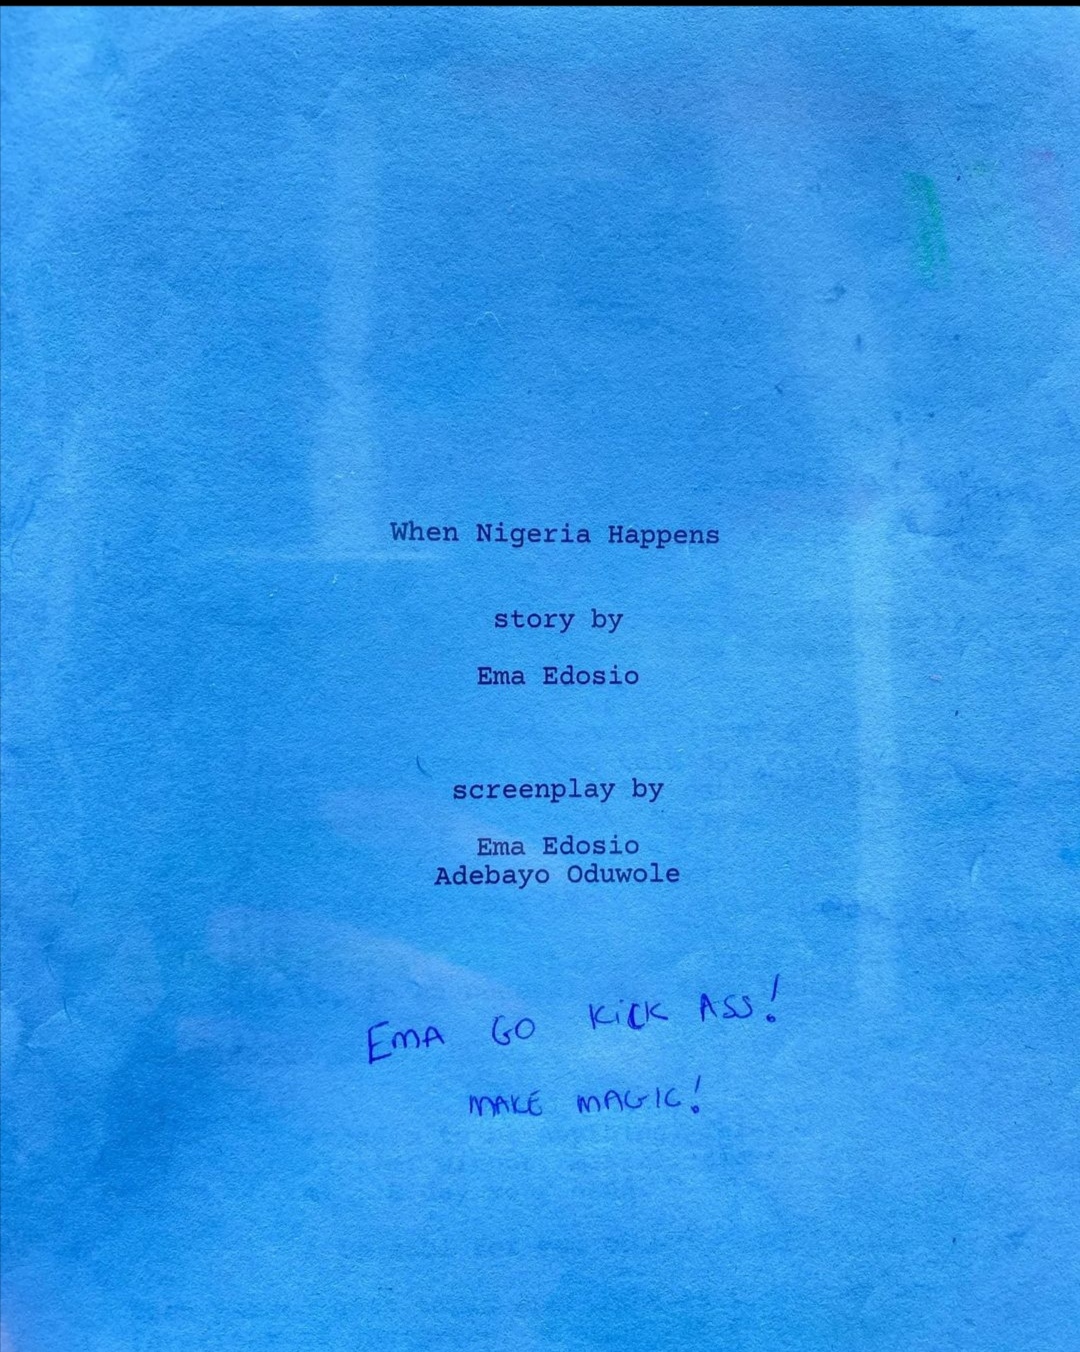 When Nigeria Happens
story by
Ema Edosio
screenplay by
Ema Edosio
Adebayo Oduwole
EMA GO KiCK ASS!
MAKE MAGIC!